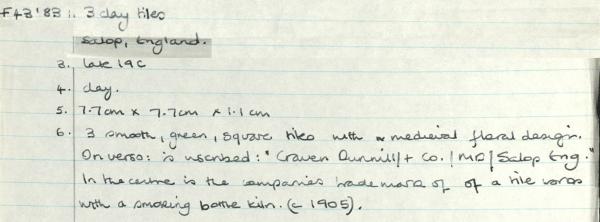 F43'83 :. 3 clay tiles
Salop, England.
3. late 19c
4. clay.
5. 7.7cm x 7.7cm x 1.1 cm
6. 3 smooth, green, square tiles with a medieval floral design.
On verso: is inscribed: "Craven Dunnill/+ Co. / MC / Salop Eng."
In the centre is the companies trade mark of of a tile works
with a smoking bottle kiln. (c 1905).